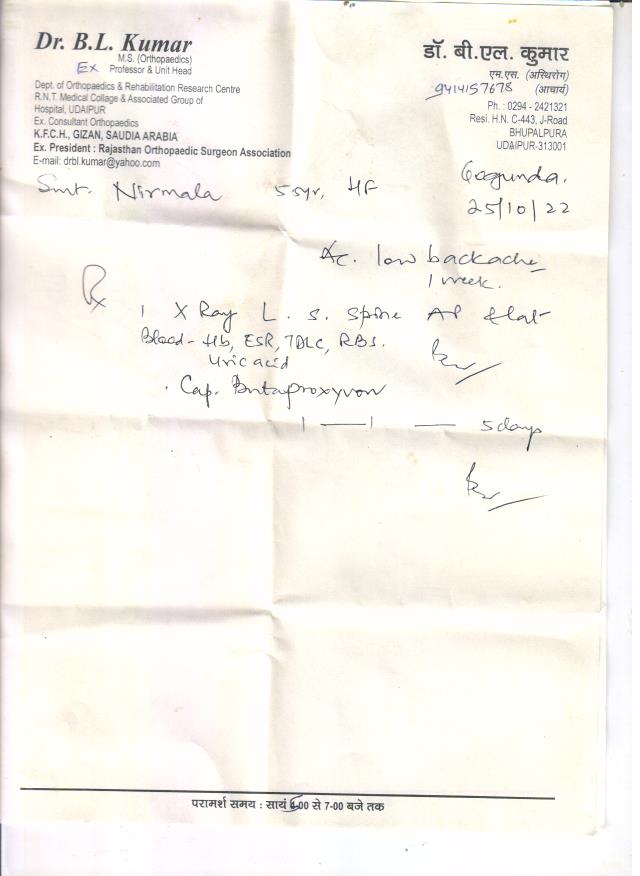 Dr. B.L. Kumar
M.S. (Orthopaedics)
Ex Professor & Unit Head
Dept. of Orthopaedics & Rehabilitation Research Centre
R.N.T. Medical Collage & Associated Group of
Hospital, UDAIPUR
Ex. Consultant Orthopaedics
K.F.C.H., GIZAN, SAUDIA ARABIA
Ex. President : Rajasthan Orthopaedic Surgeon Association
E-mail: drbl.kumar@yahoo.com
डॉ. बी.एल. कुमार
एम.एस. (अस्थिरोग)
9414157678 (आचार्य)
Ph. : 0294 - 2421321
Resi. H.N. C-443, J-Road
BHUPALPURA
UDAIPUR-313001
Smt. Nirmala 55yr, HF
Gogunda.
25/10/22
Ac. low backache
1 week.
Rx
1 X Ray L. S. Spine AP & lat
Blood - Hb, ESR, TDLC, RBS.
Uric acid
. Cap. Butaproxyvon
1 — 1 — 5 days
परामर्श समय : सायं 5-00 से 7-00 बजे तक